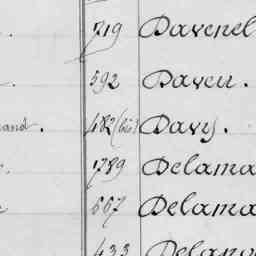 719 Davenel
592 Daveu.
and. 482 (bis) Davy.
1789 Delama
667 Delama
433